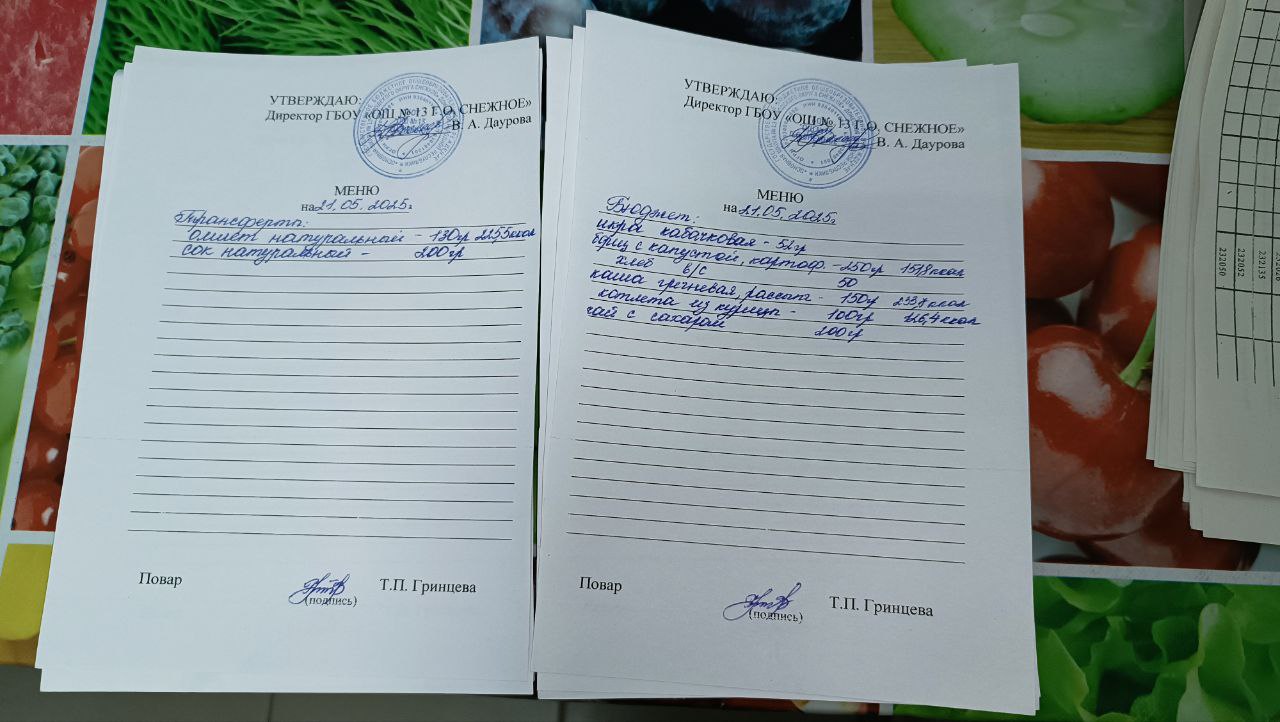 УТВЕРЖДАЮ:
Директор ГБОУ «ОШ № 13 Г.О. СНЕЖНОЕ»
В. А. Даурова
МЕНЮ
на 21.05.2025г
Трансферты:
омлет натуральный - 130гр 221,55ккал
сок натуральный - 200гр
Повар
(подпись)
Т.П. Гринцева
УТВЕРЖДАЮ:
Директор ГБОУ «ОШ № Г.О. СНЕЖНОЕ»
В. А. Даурова
МЕНЮ
на 21.05.2025г.
Бюджет:
икра кабачковая - 52гр
борщ с капустой, картоф. - 250гр 151,8ккал
хлеб б/с 50
каша гречневая, рассып - 150гр 233,8ккал
котлета из курицы - 100гр
чай с сахаром 200гр
Повар
(подпись)
Т.П. Гринцева
232050
232052
232135